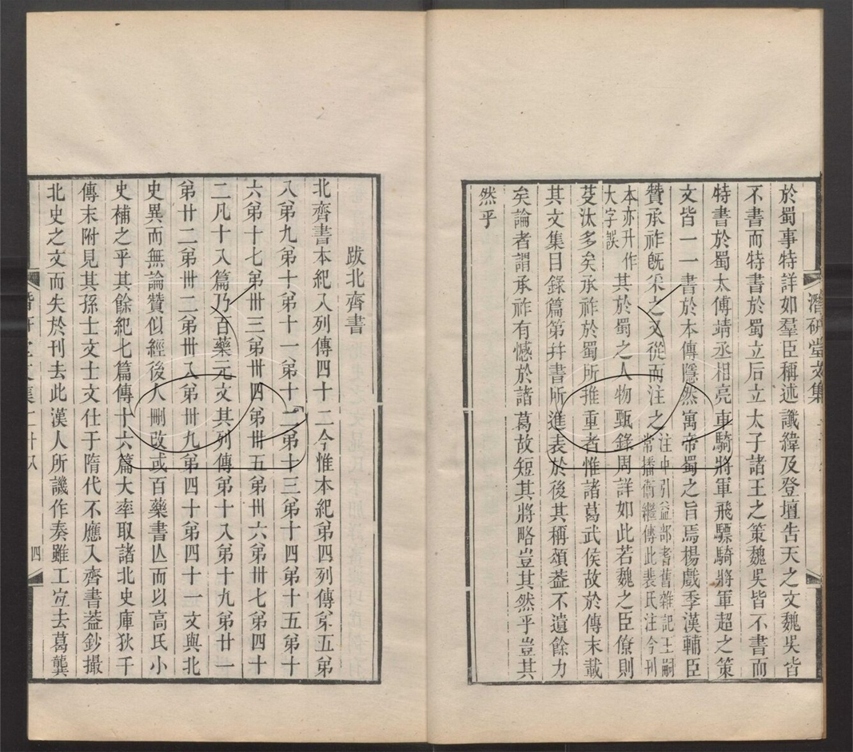 於蜀事特詳如羣臣稱述讖緯及登壇吿天之文魏吳皆
不書而特書於蜀立后立太子諸王之策魏吳皆不書而
特書於蜀太傅靖丞相亮車騎將軍飛驃騎將軍超之策
文皆一一書於本傳隱然寓帝蜀之旨焉楊戲季漢輔臣
贊承祚旣采之又從而注之注中引益部耆舊雜記王嗣
常播衛繼傳此裴氏注今刊
本亦升作
大字誤
其於蜀之人物甄錄周詳如此若魏之臣僚則
芟汰多矣承祚於蜀所推重者惟諸葛武侯故於傳末載
其文集目錄篇第幷書所進表於後其稱頌葢不遺餘力
矣論者謂承祚有憾於諸葛故短其將略豈其然乎豈其
然乎
潛硏堂文集
跋北齊書
北齊書本紀八列傳四十二今惟本紀第四列傳第五第
八第九第十第十一第十二第十三第十四第十五第十
六第十七第卅三第卅四第卅五第卅六第卅七第四十
二凡十八篇乃百藥元文其列傳第十八第十九第廿一
第廿二第卅二第卅八第卅九第四十第四十一文與北
史異而無論贊似經後人刪改或百藥書亾而以高氏小
史補之乎其餘紀七篇傳十六篇大率取諸北史庫狄干
傳末附見其孫士文士文仕于隋代不應入齊書葢鈔撮
北史之文而失於刊去此漢人所譏作奏雖工宐去葛龔
四